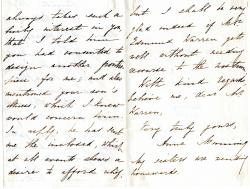 always takes such a
kindly interest in you,
that I told him
you had consented to
design another frontis-
piece for me; and also
mentioned your son's
illness, which I knew
would concern him.
In reply, he has sent
me the inclosed, which
at all events shows a
desire to afford relief,
but I shall be very
glad indeed if Mr.
Edmund Warren gets
well without needing
recourse to the
With kind regards
believe me, dear Mr.
Warren,
Very truly yours,
Anne Manning
My sisters are
homewards.